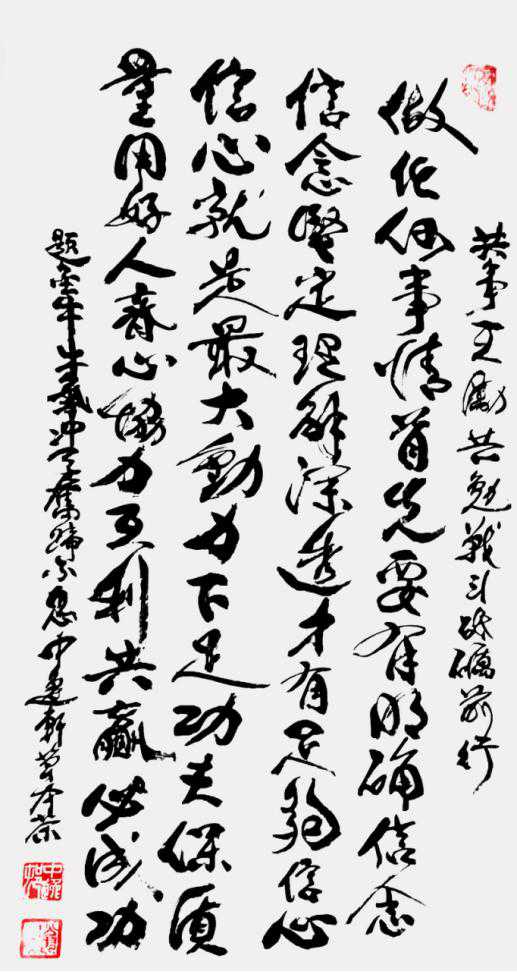 共事互勵共勉戰斗砥礪前行
做任何事情首先要有明确信念
信念堅定理解深透才有足夠信心
信心就是最大動力下足功夫保質
量用好人齊心協力互利共贏必成功
題金牛年氣冲天奮蹄不息中建軒